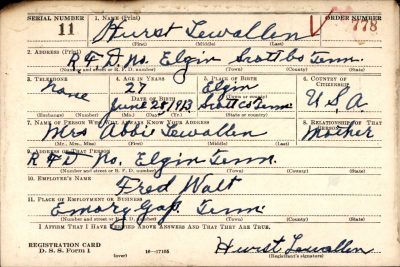 SERIAL NUMBER 1. NAME (Print) ORDER NUMBER
11 Hurst Lewallen V 778
(First) (Middle) (Last)
2. ADDRESS (Print)
R F D. No. Elgin Scott Co Tenn.
(Number and street or R. F. D. number) (Town) (County) (State)
3. TELEPHONE 4. AGE IN YEARS 5. PLACE OF BIRTH 6. COUNTRY OF CITIZENSHIP
none 27 Elgin
DATE OF BIRTH
June 28, 1913 Scott co Tenn. U.S.A.
(Exchange) (Number) (Mo.) (Day) (Yr.) (State or country)
7. NAME OF PERSON WHO WILL ALWAYS KNOW YOUR ADDRESS 8. RELATIONSHIP OF THAT PERSON
Mrs Abbi Lewallen Mother
(Mr., Mrs., Miss) (First) (Middle) (Last)
9. ADDRESS OF THAT PERSON
R F D No. Elgin Tenn.
(Number and street or R. F. D. number) (Town) (County) (State)
10. EMPLOYER'S NAME
Fred Walt
11. PLACE OF EMPLOYMENT OR BUSINESS
Emory Gap. Tenn.
(Number and street or R. F. D. number) (Town) (County) (State)
I AFFIRM THAT I HAVE VERIFIED ABOVE ANSWERS AND THAT THEY ARE TRUE.
REGISTRATION CARD
D. S. S. Form 1 16—17105 Hurst Lewallen
(over) (Registrant's signature)